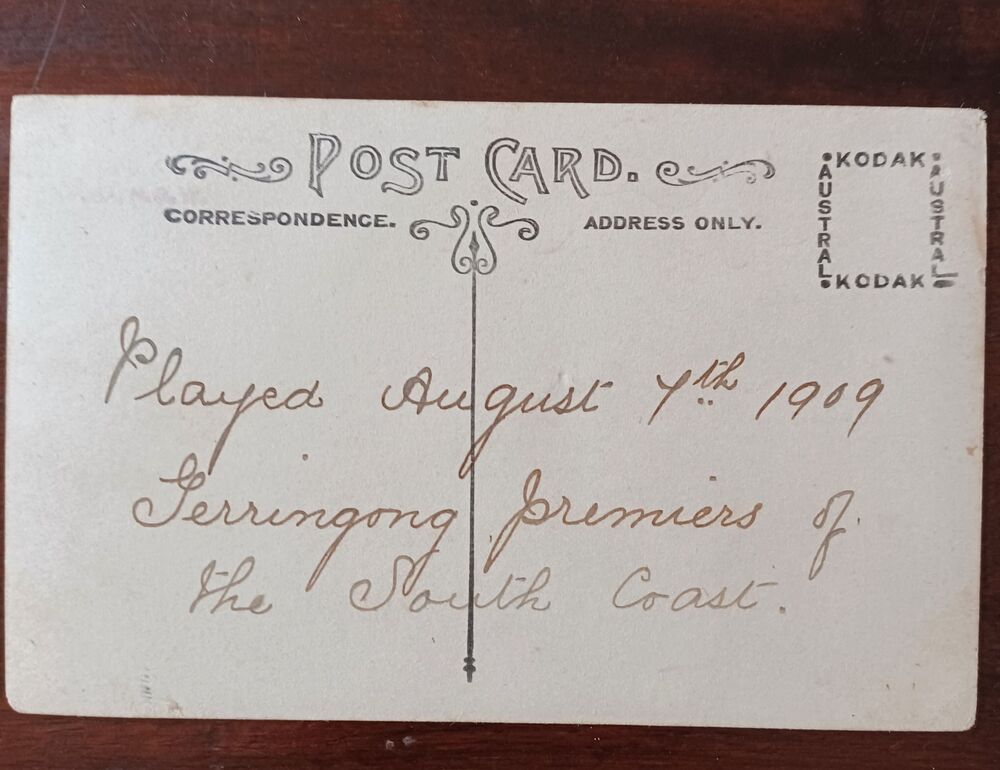 POST CARD.
CORRESPONDENCE. ADDRESS ONLY.
KODAK
AUSTRAL
AUSTRAL
KODAK
Played August 7th 1909
Gerringong premiers of
the South Coast.